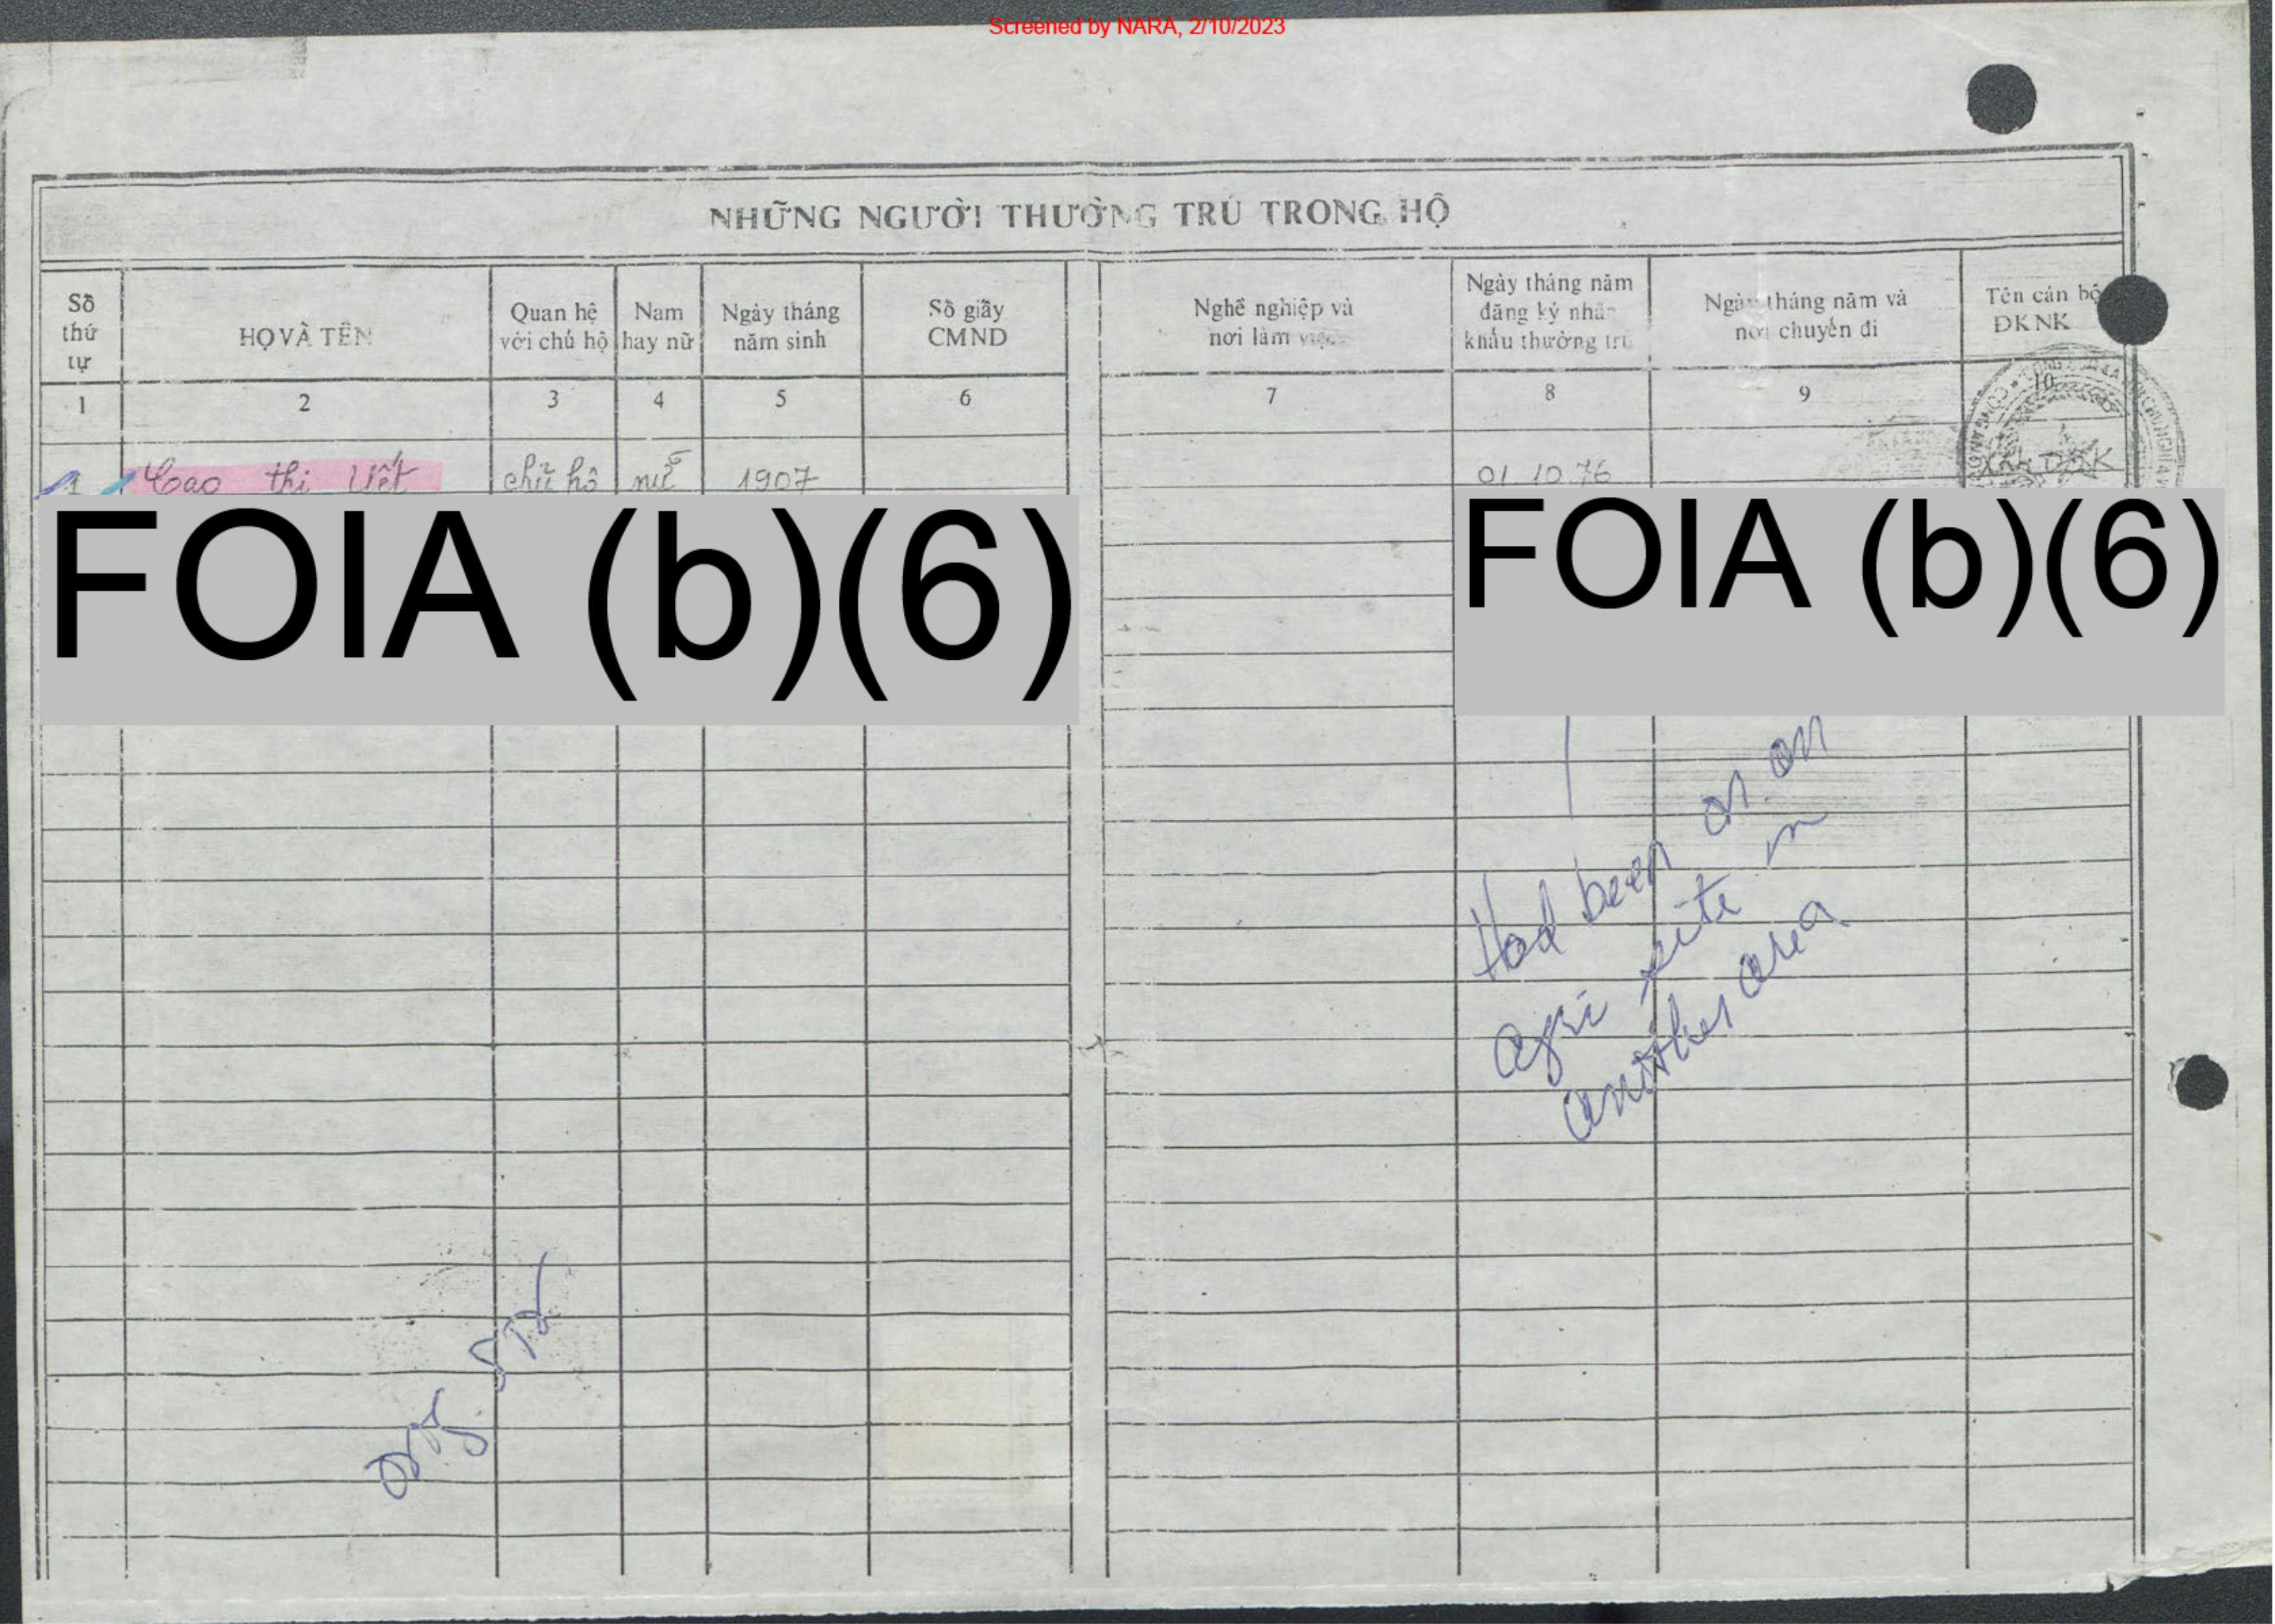 Screened by NARA, 2/10/2023
NHỮNG NGƯỜI THƯỜNG TRÚ TRONG HỘ
Số thứ tự
HỌ VÀ TÊN
Quan hệ với chủ hộ
Nam hay nữ
Ngày tháng năm sinh
Số giấy CMND
Nghề nghiệp và nơi làm việc
Ngày tháng năm đăng ký nhân khẩu thường trú
Ngày tháng năm và nơi chuyển đi
Tên cán bộ ĐKNK
1 2 3 4 5 6 7 8 9 10
1 Cao thị Vết chủ hộ nữ 1907 01.10.76
FOIA (b)(6)
FOIA (b)(6)
Had been on an
agri site in
another area
orig